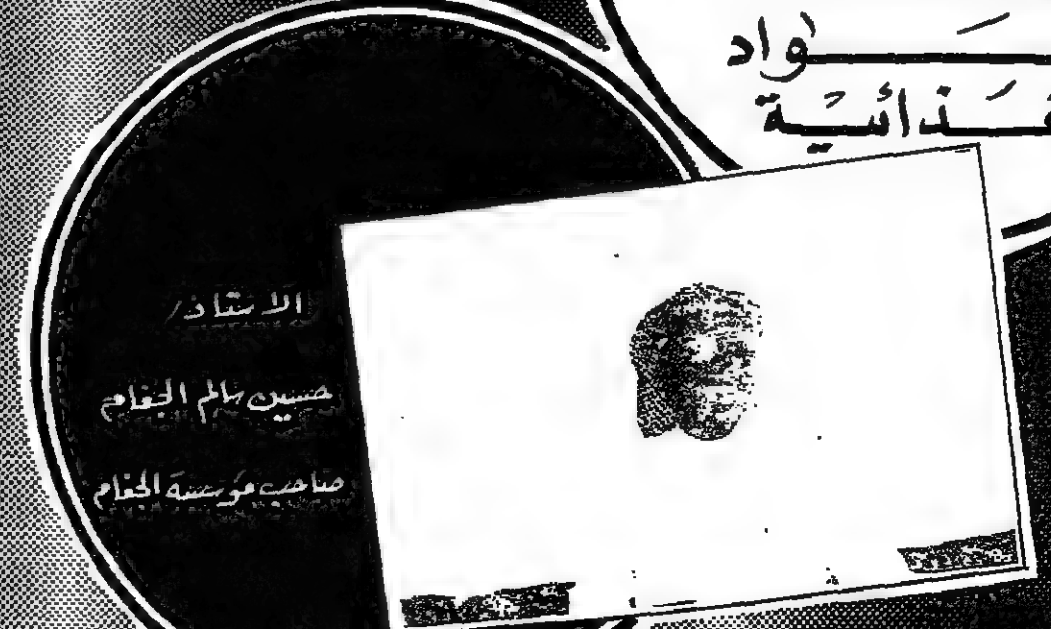 ـواد
ـغـذائيـة
الاستاذ/
حسين سالم الجغام
صاحب مؤسسة الجغام